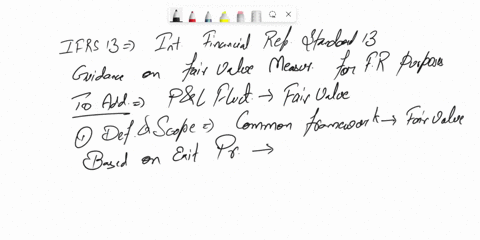 IFRS 13 ⇒ Int Financial Rep Standard 13
Guidance on fair value Measur. for FR Purposes
To Add ⇒ P&L Fluct → Fair Value
① Def & Scope ⇒ Common framework → Fair Value
Based on Exit Pr. →